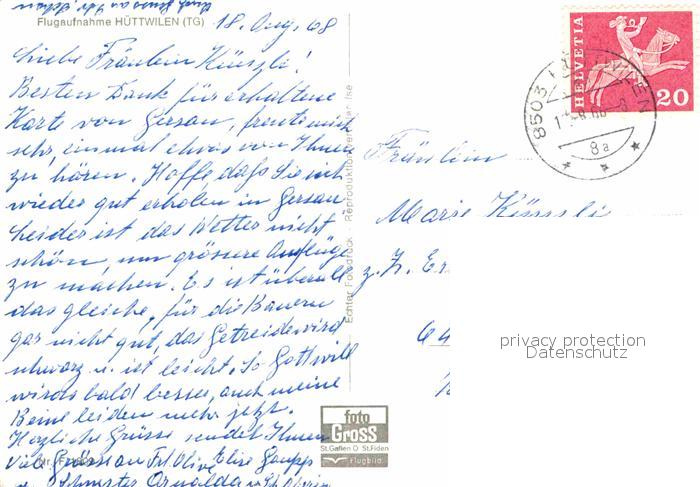 Flugaufnahme HÜTTWILEN (TG)
18. Aug. 68
Liebe Fräulein Künzli!
Besten Dank für erhaltene
Karte von Gersau, freute mich
sehr, einmal etwas von Ihnen
zu hören. Hoffe, dass Sie sich
wieder gut erholen in Gersau
Leider ist das Wetter nicht
schön, um grössere Ausflüge
zu machen. Es ist überall
das gleiche, für die Bauern
gar nicht gut, das Getreide wird
schwarz u. ist leicht. So Gott will
wirds bald besser, auch meine
Beine leiden mehr jetzt.
Herzliche Grüsse sendet Ihnen
viele Grüsse an Frl. Olive
Echter Fotodruck
HELVETIA
20
8503 HÜTTWILEN
8a
Fräulein
Marie Künzli
z. Z.
64
privacy protection
Datenschutz
foto
Gross
St.Gallen O St.Fiden
Flugbild